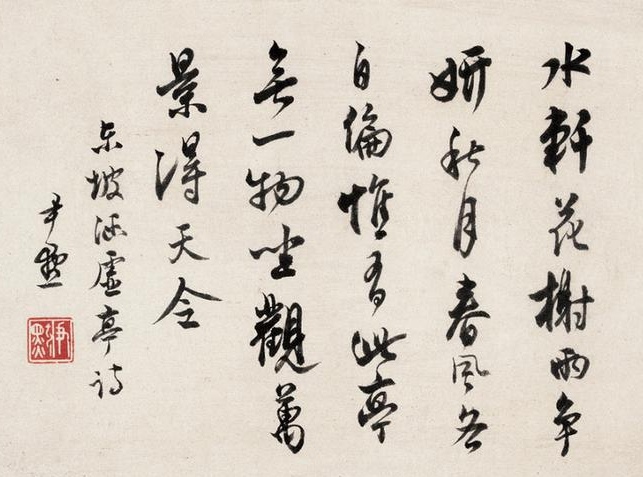 水軒花榭兩爭
妍秋月春風各
自偏惟有此亭
無一物坐觀萬
景得天全
東坡涵虛亭詩
尹默
尹默